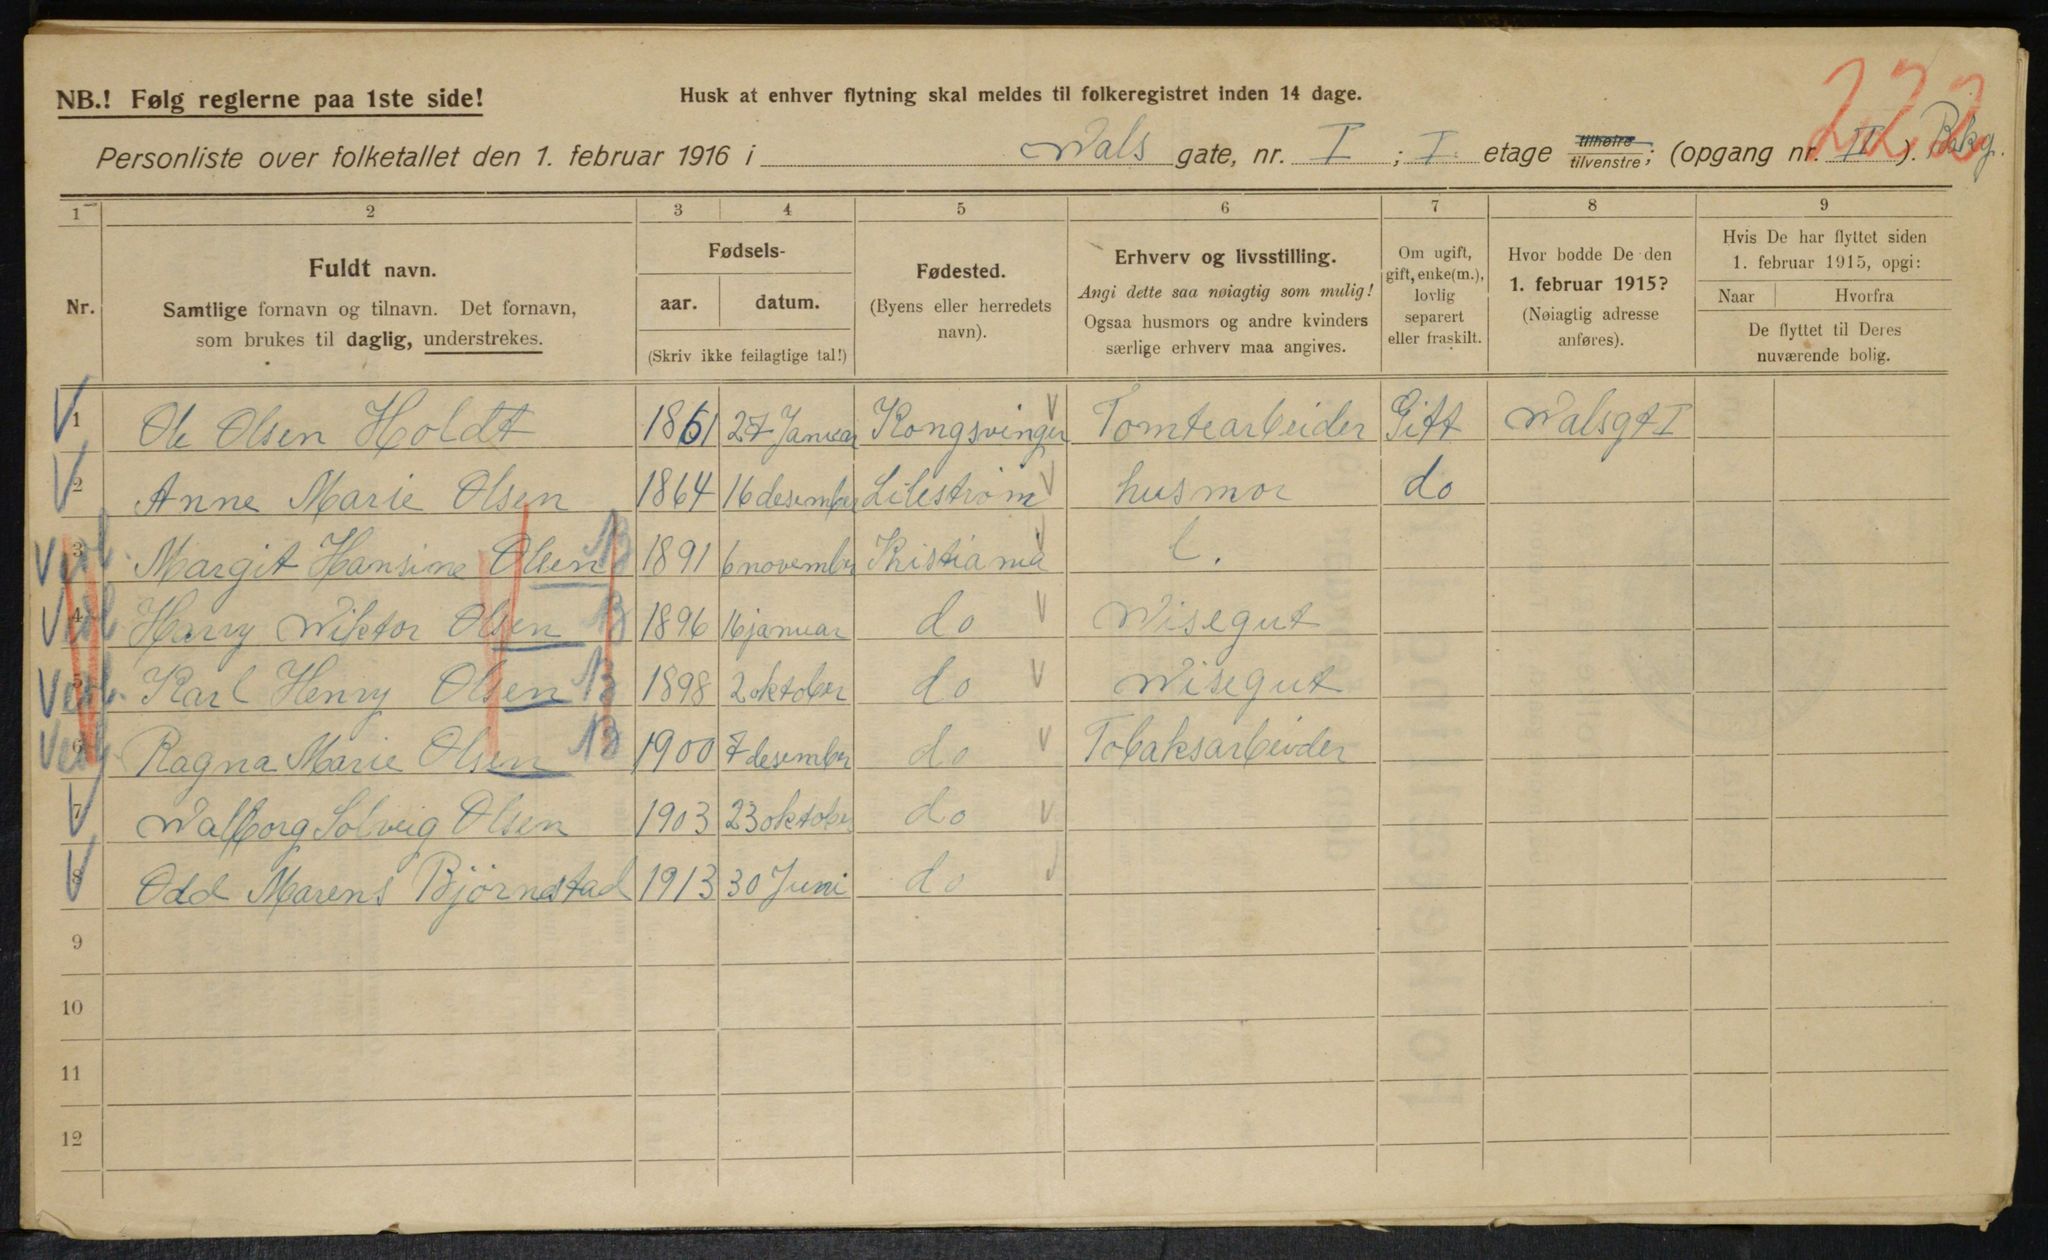 222
NB.! Følg reglerne paa 1ste side!
Husk at enhver flytning skal meldes til folkeregistret inden 14 dage.
Personliste over folketallet den 1. februar 1916 i Wals gate, nr. I ; I etage tilhøire/tilvenstre; (opgang nr. II ). Bakg.
1 2 3 4 5 6 7 8 9
Nr.
Fuldt navn.
Samtlige fornavn og tilnavn. Det fornavn,
som brukes til daglig, understrekes.
Fødsels-
aar. datum.
(Skriv ikke feilagtige tal!)
Fødested.
(Byens eller herredets
navn).
Erhverv og livsstilling.
Angi dette saa nøiagtig som mulig!
Ogsaa husmors og andre kvinders
særlige erhverv maa angives.
Om ugift,
gift, enke(m.),
lovlig
separert
eller fraskilt.
Hvor bodde De den
1. februar 1915?
(Nøiagtig adresse
anføres).
Hvis De har flyttet siden
1. februar 1915, opgi:
Naar Hvorfra
De flyttet til Deres
nuværende bolig.
1 Ole Olsen Holdt 1861 27 Januar Kongsvinger Tomtearbeider Gift Walsgt I
2 Anne Marie Olsen 1864 16 desember Lilestrøm husmor do
3 Margit Hansine Olsen B 1891 6 november Kristiania
4 Harry Wiktor Olsen B 1896 16 januar do Wisegut
5 Karl Henry Olsen B 1898 2 oktober do Wisegut
6 Ragna Marie Olsen B 1900 7 desember do Tobaksarbeider
7 Walborg Solveig Olsen 1903 23 oktober do
8 Odd Marens Bjørnstad 1913 30 Juni do
9
10
11
12